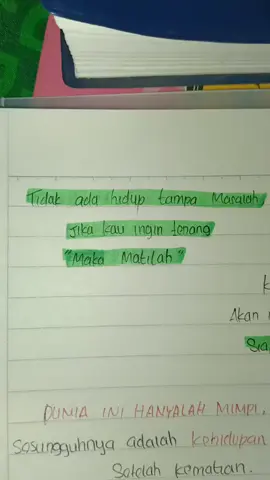 Tidak ada hidup tampa Masalah
Jika kau ingin tenang
"Maka Matilah"
K
Akan
Sia
DUNIA INI HANYALAH MIMPI.
Sesungguhnya adalah kehidupan
Setelah kematian.